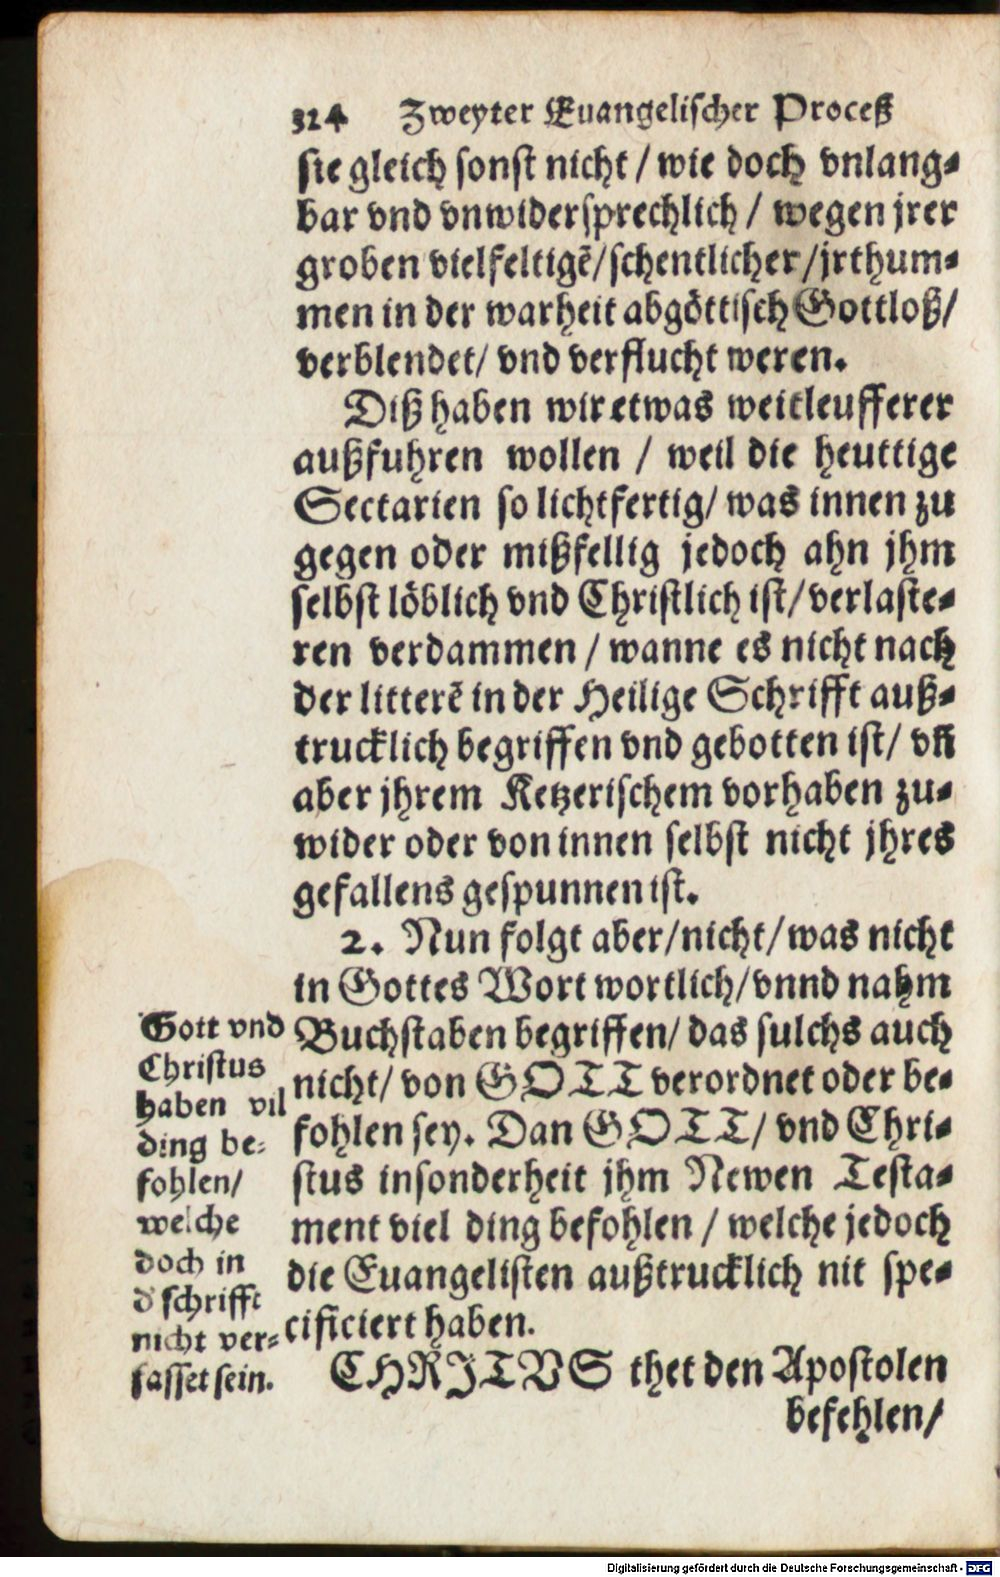 324 Zweyter Euangelischer Proceß
sie gleich sonst nicht / wie doch vnlang⸗
bar vnd vnwidersprechlich / wegen jrer
groben vielfeltigẽ/schentlicher/jrthum⸗
men in der warheit abgöttisch Gottloß/
verblendet/ vnd verflucht weren.
Diß haben wir etwas weitleufferer
außfuhren wollen / weil die heuttige
Sectarien so lichtfertig/ was innen zu
gegen oder mißfellig jedoch ahn jhm
selbst löblich vnd Christlich ist/ verlaste⸗
ren verdammen / wanne es nicht nach
der litterẽ in der Heilige Schrifft auß⸗
trucklich begriffen vnd gebotten ist/ vñ
aber jhrem Ketzerischem vorhaben zu⸗
wider oder von innen selbst nicht jhres
gefallens gespunnen ist.
2. Nun folgt aber/nicht/was nicht
in Gottes Wort wortlich/vnnd nahm
Buchstaben begriffen/ das sulchs auch
nicht/ von GOTT verordnet oder be⸗
fohlen sey. Dan GOTT/ vnd Chri⸗
stus insonderheit jhm Newen Testa⸗
ment viel ding befohlen / welche jedoch
die Euangelisten außtrucklich nit spe⸗
cificiert haben.
CHRITVS thet den Apostolen
befehlen/
Gott vnd
Christus
haben vil
ding be⸗
fohlen/
welche
doch in
d' schrifft
nicht ver⸗
fasset sein.
Digitalisierung gefördert durch die Deutsche Forschungsgemeinschaft - DFG